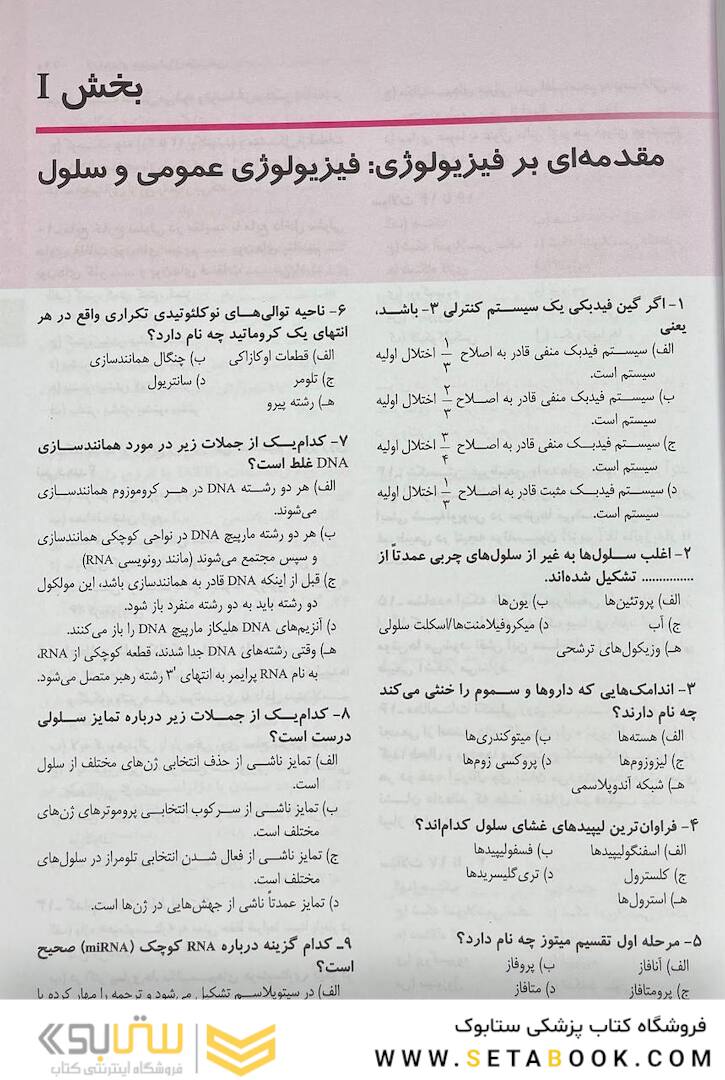 بخش I
مقدمه‌ای بر فیزیولوژی: فیزیولوژی عمومی و سلول
۱- اگر گین فیدبکی یک سیستم کنترلی ۳- باشد،
یعنی
الف) سیستم فیدبک منفی قادر به اصلاح ۱/۳ اختلال اولیه
سیستم است.
ب) سیستم فیدبک منفی قادر به اصلاح ۲/۳ اختلال اولیه
سیستم است.
ج) سیستم فیدبک منفی قادر به اصلاح ۳/۴ اختلال اولیه
سیستم است.
د) سیستم فیدبک مثبت قادر به اصلاح ۱/۳ اختلال اولیه
سیستم است.
۲- اغلب سلول‌ها به غیر از سلول‌های چربی عمدتاً از
.............. تشکیل شده‌اند.
الف) پروتئین‌ها ب) یون‌ها
ج) آب د) میکروفیلامنت‌ها/اسکلت سلولی
هـ) وزیکول‌های ترشحی
۳- اندامک‌هایی که داروها و سموم را خنثی می‌کند
چه نام دارند؟
الف) هسته‌ها ب) میتوکندری‌ها
ج) لیزوزوم‌ها د) پروکسی زوم‌ها
هـ) شبکه آندوپلاسمی
۴- فراوان‌ترین لیپیدهای غشای سلول کدام‌اند؟
الف) اسفنگولیپیدها ب) فسفولیپیدها
ج) کلسترول د) تری‌گلیسریدها
هـ) استرول‌ها
۵- مرحله اول تقسیم میتوز چه نام دارد؟
الف) آنافاز ب) پروفاز
ج) پرومتافاز د) متافاز
۶- ناحیه توالی‌های نوکلئوتیدی تکراری واقع در هر
انتهای یک کروماتید چه نام دارد؟
الف) قطعات اوکازاکی ب) چنگال همانندسازی
ج) تلومر د) سانتریول
هـ) رشته پیرو
۷- کدام‌یک از جملات زیر در مورد همانندسازی
DNA غلط است؟
الف) هر دو رشته DNA در هر کروموزوم همانندسازی
می‌شوند.
ب) هر دو رشته مارپیچ DNA در نواحی کوچکی همانندسازی
و سپس مجتمع می‌شوند (مانند رونویسی RNA)
ج) قبل از اینکه DNA قادر به همانندسازی باشد، این مولکول
دو رشته باید به دو رشته منفرد باز شود.
د) آنزیم‌های DNA هلیکاز مارپیچ DNA را باز می‌کنند.
هـ) وقتی رشته‌های DNA جدا شدند، قطعه کوچکی از RNA،
به نام RNA پرایمر به انتهای ۳′ رشته رهبر متصل می‌شود.
۸- کدام‌یک از جملات زیر درباره تمایز سلولی
درست است؟
الف) تمایز ناشی از حذف انتخابی ژن‌های مختلف از سلول
است.
ب) تمایز ناشی از سرکوب انتخابی پروموترهای ژن‌های
مختلف است.
ج) تمایز ناشی از فعال شدن انتخابی تلومراز در سلول‌های
مختلف است.
د) تمایز عمدتاً ناشی از جهش‌هایی در ژن‌ها است.
۹ـ کدام گزینه درباره RNA کوچک (miRNA) صحیح
است؟
الف) در سیتوپلاسم تشکیل می‌شود و ترجمه را مهار کرده یا
فروشگاه کتاب پزشکی ستابوک
WWW.SETABOOK.COM
ستابوک
فروشگاه اینترنتی کتاب